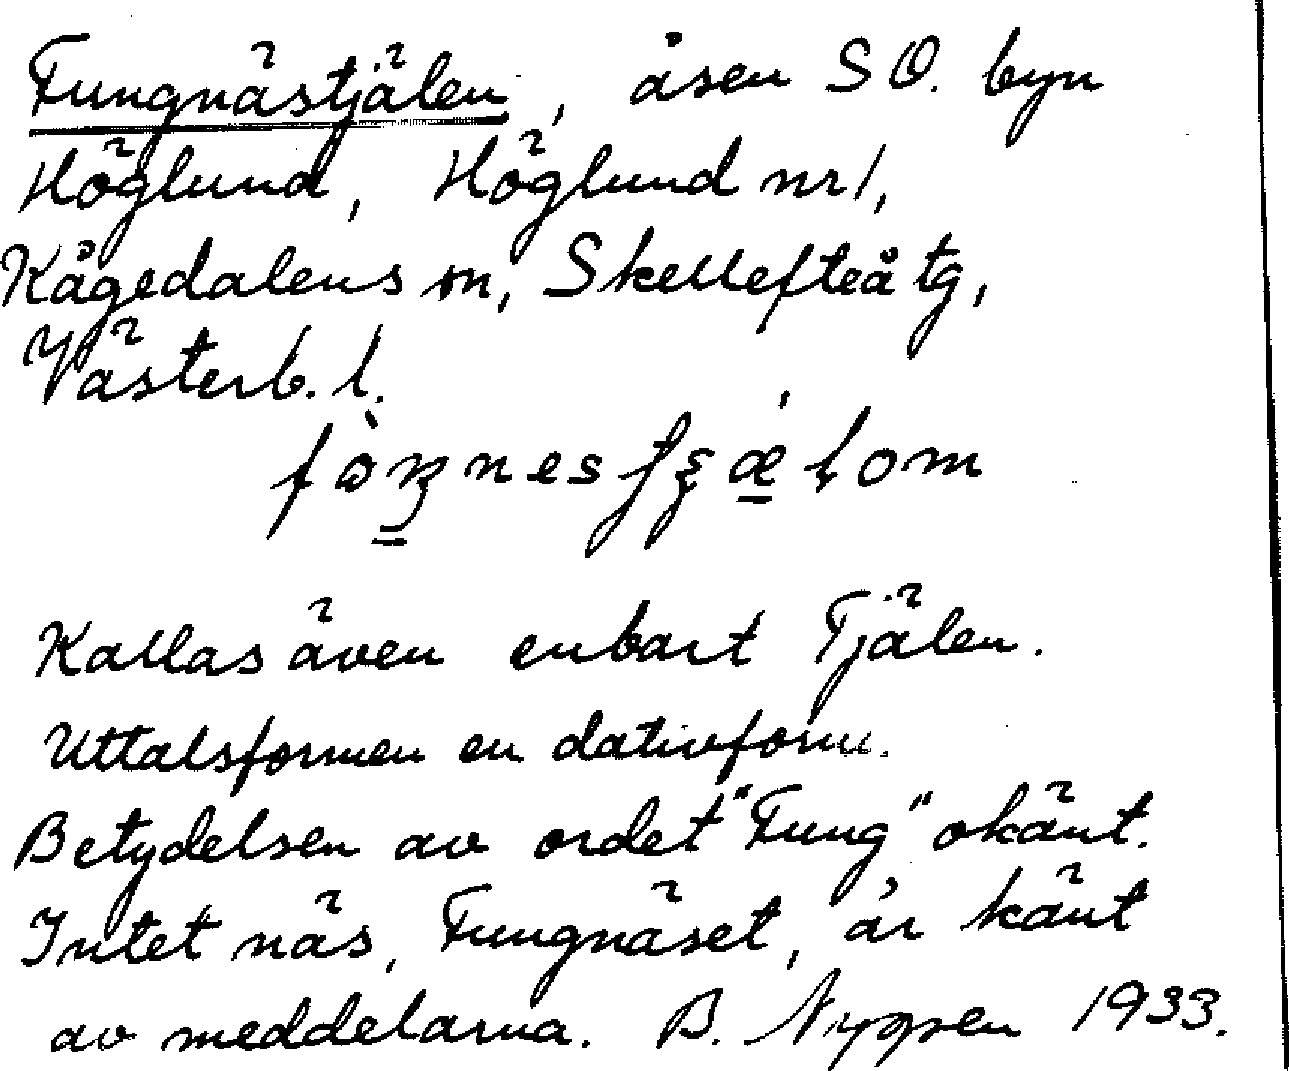 Fungnästjälen, åsen SO. byn
Höglund, Höglund nr 1,
Kågedalens sn, Skellefteå tg,
Västerb. l.
Kallas även enbart Tjälen.
Uttalsformen en dativform.
Betydelsen av ordet "Fung" okänt.
Intet näs, Fungnäset, är känt
av meddelarna. B. 1933.